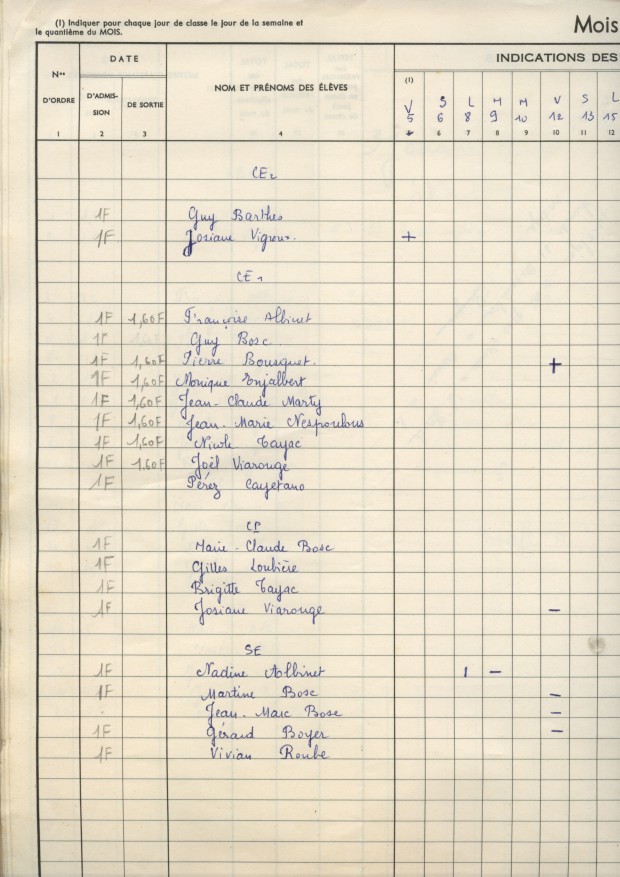 (I) Indiquer pour chaque jour de classe le jour de la semaine et
le quantième du MOIS.
Mois
DATE
INDICATIONS DES
Nos
D'ORDRE
D'ADMIS-
SION
DE SORTIE
NOM ET PRÉNOMS DES ÉLÈVES
(1)
V S L M M V S L
5 6 8 9 10 12 13 15
1 2 3 4 5 6 7 8 9 10 11 12
CE2
1F Guy Barthes
1F Josiane Vigroux. +
CE1
1F 1,60F Françoise Albinet
1F Guy Bosc
1F 1,60F Pierre Bousquet. +
1F 1,60F Monique Enjalbert
1F 1,60F Jean-Claude Marty
1F 1,60F Jean-Marie Nespoulous
1F 1,60F Nicole Tayac
1F 1.60F Joël Viarouge
1F Pérez Cayetano
CP
1F Marie-Claude Bosc
1F Gilles Loubière
1F Brigitte Tayac
1F Josiane Viarouge –
SE
1F Nadine Albinet | –
1F Martine Bosc –
Jean-Marc Bosc –
1F Gérard Boyer –
1F Vivian Roube